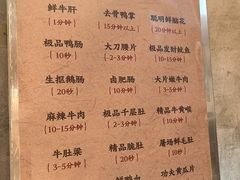 鲜牛肝 去骨鸭掌 聪明鲜脑花
{1分钟} {15分钟以上} {20分钟以上}
极品鸭肠 大刀腰片 极品发财鱿鱼
{10秒} {2-3分钟} {10-15分钟}
生抠鹅肠 卤肥肠 大片嫩牛肉
{10秒} {10分钟} {2-3分钟}
麻辣牛肉 极品千层肚 精品牛黄喉
{10-15分钟} {10秒} {10分钟}
牛肚梁 精品脆肚 屠场鲜毛肚
{3-5分钟} {20秒} {10秒}
鲜鸭血 功夫黄瓜片